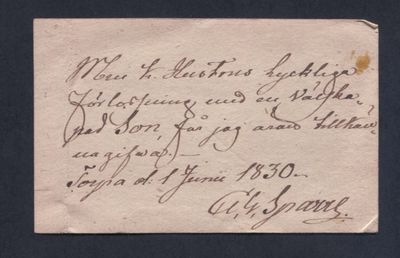 Min k. Hustrus lyckliga
förlossning med en välska-
pad Son, får jag äran tillkän-
nagifwa. —
Torpa d. 1 Junii 1830.
C. G. Sparre.